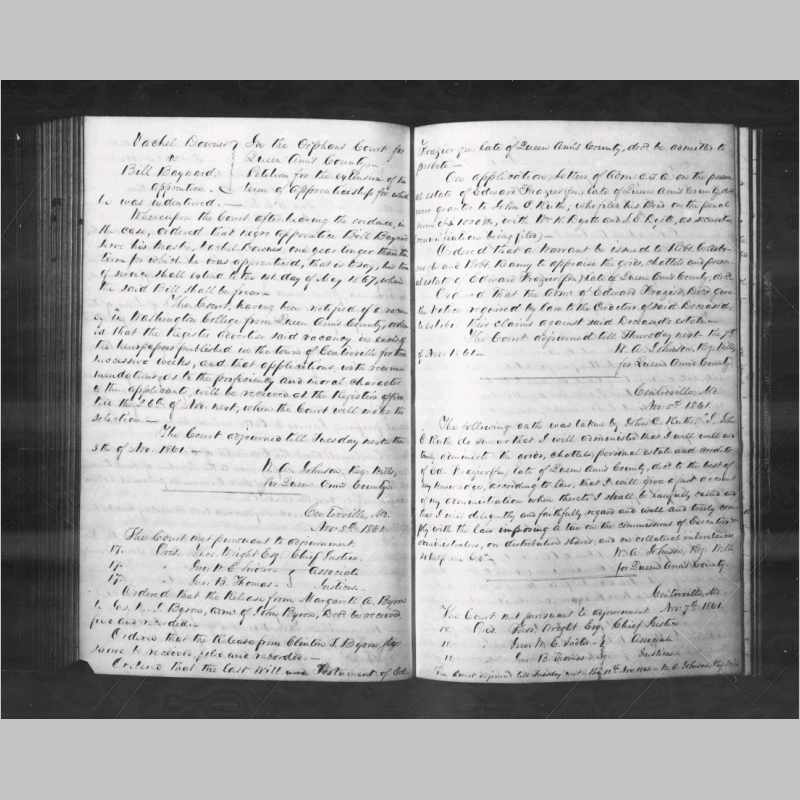 Vachel Downes } In the Orphans Court for
vs } Queen Ann's County.—
Bill Bayard } Petition for the extension of the
apprentice. } term of apprenticeship for which
he was indentured.—
Whereupon the Court after hearing the evidence in
the case, ordered that negro apprentice Bill Bayard
serve his master, Vachel Downes one year longer than the
term for which he was apprenticed, that is to say, his term
of service shall extend to the 1st day of May 1867, when
the said Bill shall be free.—
The Court, having been notified of a vacan
cy in Washington College from Queen Ann's County, orders
is that the Register advertise said vacancy in each of
the Newspapers published in the town of Centreville for two
successive weeks, and that applications, with recom
mendations as to the proficiency and moral character
of the applicant, will be received at the Register's office
till the 26th of Nov. next, when the Court will make the
selection—
The Court adjourned till Tuesday next the
5th of Nov. 1861—
W. A. Johnson, Reg. Wills,
for Queen Ann's County
Centreville, Md.
Nov. 5th 1861.
The Court met pursuant to adjournment
17. Pres. Wright Esq Chief Justice.
17. " Geo. W. E. } Associate
17. " Geo. B. Thomas } Justices.
Ordered that the Release from Margaret A. Byrn
to Byrn, adm. of John Byrn, Decd be received
filed and recorded.—
Ordered that the Release from Clinton S. Byrn
same be received, filed and recorded.—
Ordered that the Last Will and Testament of Ed.
Frazier Jr. late of Queen Ann's County, decd. be admitted to
probate—
On application, letters of Admr. on the person
al estate of Edward Frazier Jr. late of Queen Ann's County, decd.
were granted to John C. Ruth, who files his Bond in the penal
sum of with Wm. H. and as securities
being filed;—
Ordered that a warrant be issued to Robt.
and Robt. to appraise the goods, chattels and person
al estate of Edward Frazier Jr. late of Queen Ann's County, decd.
Ordered that the Admr. of Edward Frazier, Decd. give
the notice required by law to the Creditors of said Deceased,
to exhibit their claims against said Deceased's estate.—
The Court adjourned till Thursday next the 7th
of Nov. 1861—
W. A. Johnson, Reg. Wills
for Queen Ann's County
Centreville, Md.
Nov. 5th 1861
The following oath was taken by John C. Ruth, "I, John
C. Ruth do swear that I will administer that I will well and
truly administer the goods, chattels, personal estate and credits
of Ed. Frazier Jr., late of Queen Ann's County, decd. to the best of
my knowledge, according to law, that I will give a just account
of my administration when thereto I shall be lawfully called and
that I will diligently and faithfully regard and well and truly com
ply with the Law imposing a tax on the commissions of Executors and
administrators, on distributive shares, and on collateral inheritances
so help me God"—
W. A. Johnson, Reg. Wills
for Queen Ann's County.
Centreville, Md.
The Court met pursuant to adjournment Nov. 7th 1861.
Pres. Wright Esq. Chief Justice
" Geo. W. E. } Associate
" Geo. B. Thomas } Justices—
The Court adjourned till Tuesday next the 12th Nov. 1861— W. A. Johnson, Reg. Wills